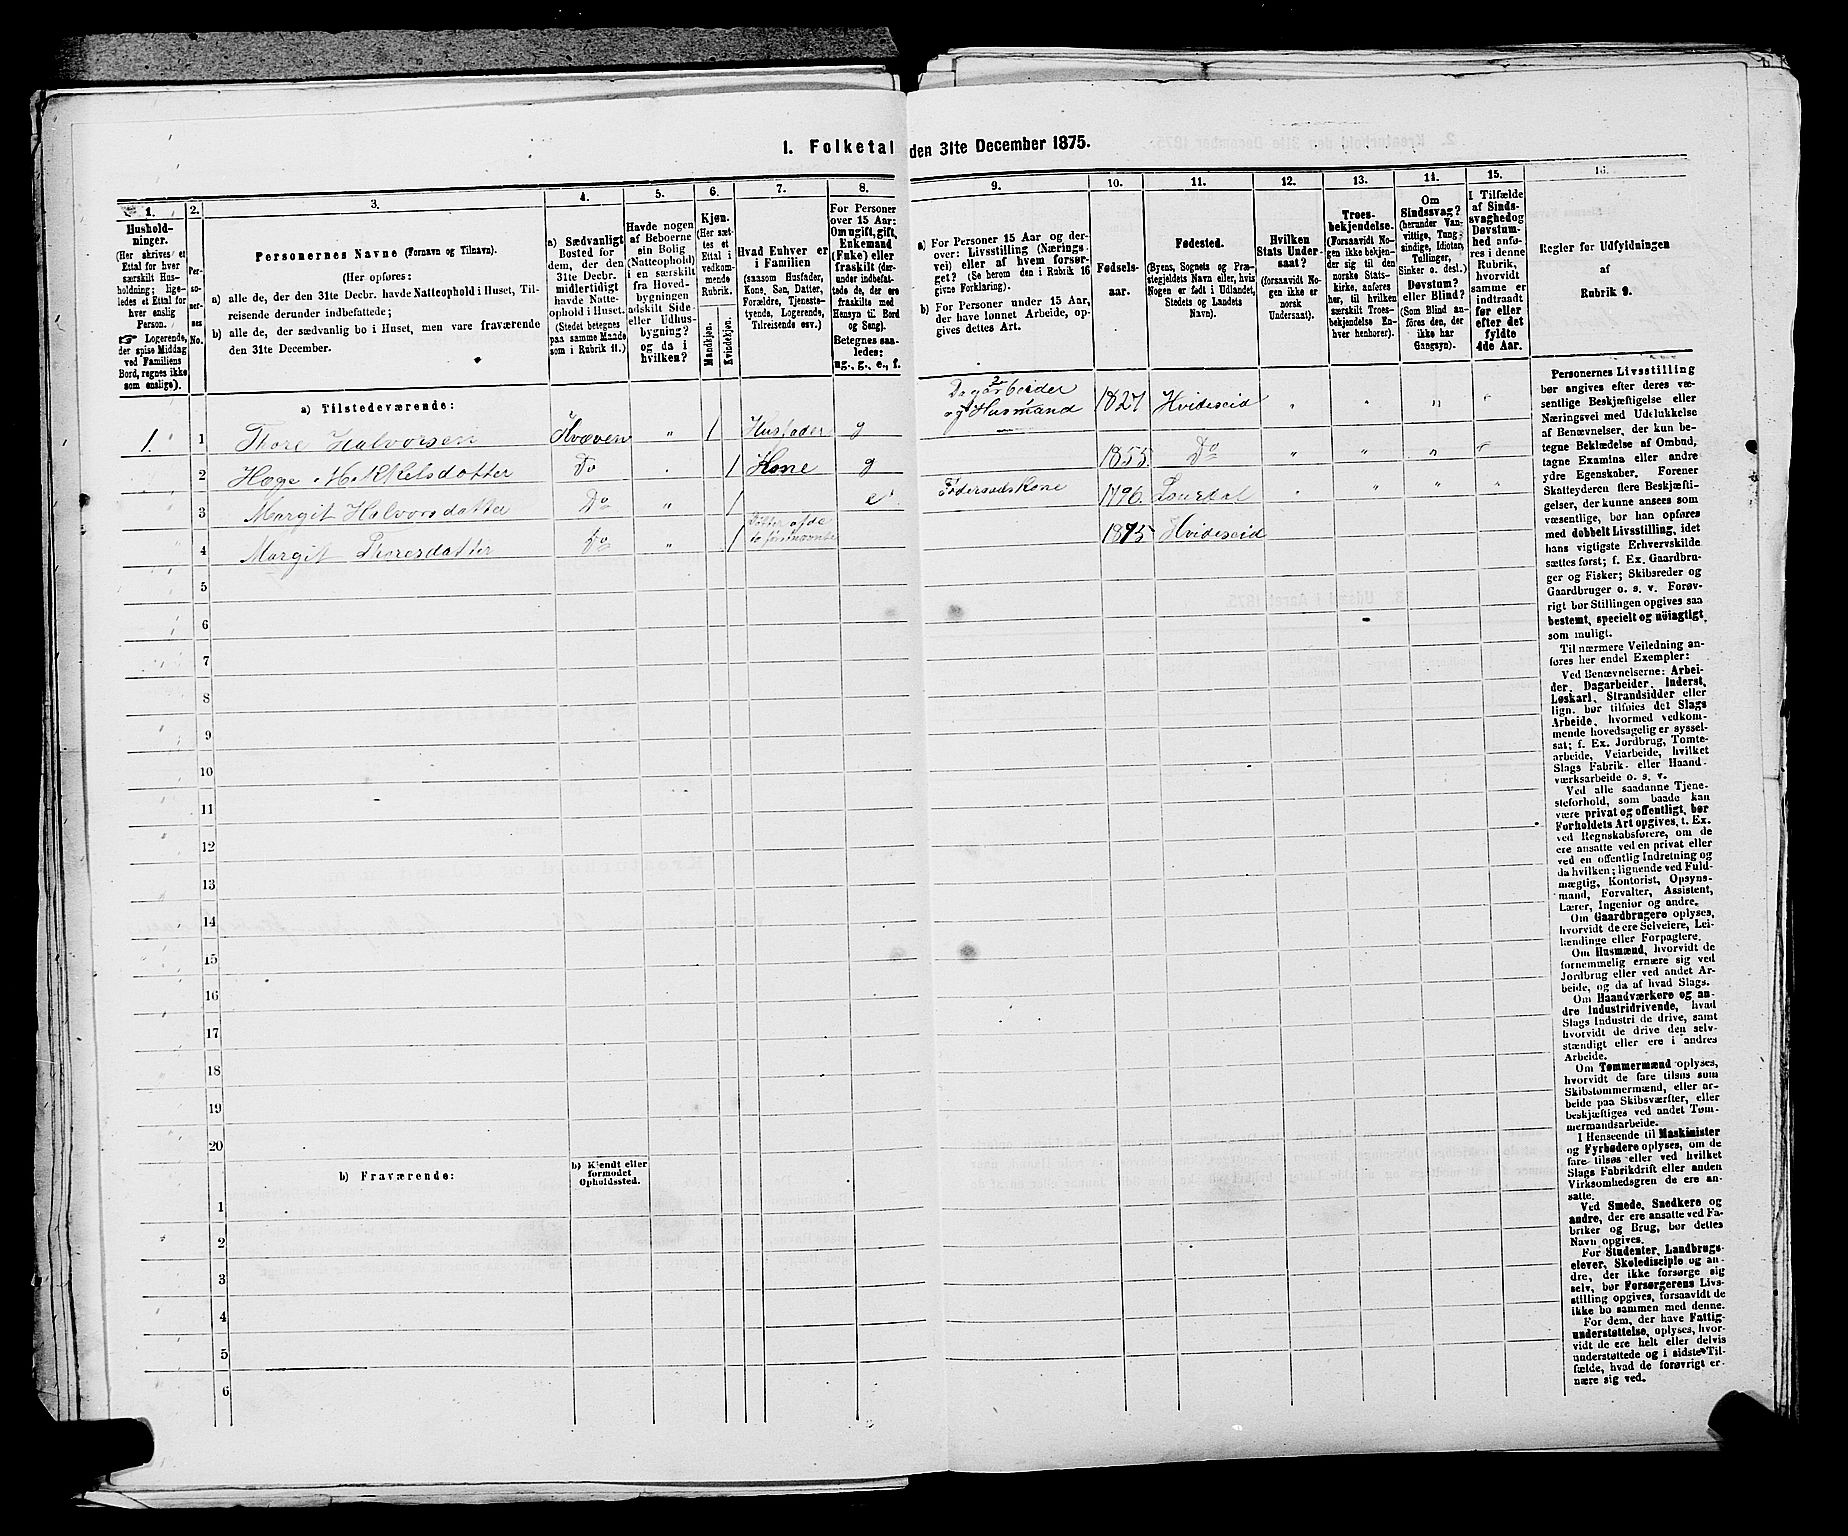 1. Folketal den 31te December 1875.
1.
2.
3.
4.
5.
6.
7.
8.
9.
10.
11.
12.
13.
14.
15.
16.
Hushold-
ninger.
(Her skrives et
Ettal for hver
særskilt Hus-
holdning; lige-
ledes et Ettal for
hver enslig
Person.
☞ Logerende,
der spise Middag
ved Familiens
Bord, regnes ikke
som enslige).
Per-
so-
ner-
nes
No.
Personernes Navne (Fornavn og Tilnavn).
(Her opføres:
a) alle de, der den 31te Decbr. havde Natteophold i Huset, Til-
reisende derunder indbefattede;
b) alle de, der sædvanlig bo i Huset, men vare fraværende
den 31te December.
a) Sædvanligt
Bosted for
dem, der den
31te Decbr.
midlertidigt
havde Natte-
ophold i Huset.
(Stedet betegnes
paa samme Maade
som i Rubrik 11.)
Havde nogen
af Beboerne
sin Bolig
(Natteophold)
i en særskilt
fra Hoved-
bygningen
adskilt Side-
eller Udhus-
bygning?
og da i
hvilken?
Kjøn.
(Her sæt-
tes et
Ettal i
vedkom-
mende
Rubrik.
Mandkjøn.
Kvindekjøn.
Hvad Enhver er
i Familien
(saasom Husfader,
Kone, Søn, Datter,
Forældre, Tjeneste-
tyende, Logerende,
Tilreisende osv.)
For Personer
over 15 Aar:
Om ugift, gift,
Enkemand
(Enke) eller
fraskilt (der-
under indbefat-
tede de, der ere
fraskilte med
Hensyn til Bord
og Seng).
Betegnes saa-
ledes:
ug., g., e., f.
a) For Personer 15 Aar og der-
over: Livsstilling (Nærings-
vei) eller af hvem forsør-
get? (Se herom den i Rubrik 16
givne Forklaring).
b) For Personer under 15 Aar,
der have lønnet Arbeide, op-
gives dettes Art.
Fødsels-
aar.
Fødested.
(Byens, Sognets og Præ-
stegjeldets Navn eller, hvis
Nogen er født i Udlandet,
Stedets og Landets
Navn).
Hvilken
Stats Under-
saat?
(forsaavidt No-
gen ikke er
norsk
Undersaat).
Troes-
bekjendelse.
(Forsaavidt No-
gen ikke bekjen-
der sig til den
norske Stats-
kirke, anføres
her, til hvilken
særskilt Troes-
bekjendelse En-
hver henhører).
Om
Sindssvag?
(herunder Van-
vittige, Tung-
sindige, Idioter,
Tullinger,
Sinker o. desl.)
Døvstum?
eller Blind?
(Som Blind an-
føres den, der
ikke har
Gangsyn).
I Tilfælde
af Sinds-
svaghed og
Døvstum-
hed anfø-
res i denne
Rubrik,
hvorvidt
samme er
indtraadt
før eller
efter det
fyldte
4de Aar.
Regler for Udfyldningen
af
Rubrik 9.
a) Tilstedeværende:
1. 1 Thore Halvorsen Kvæven „ 1 Husfader g Dagarbeider og Husmand 1827 Hvideseid „ „ „ „
2 Hæge Mikkelsdatter Do 1 Kone g 1855 Do „ „ „ „
3 Margit Halvorsdatter Do „ 1 e Føderaadskone 1796 Laurdal „ „ „ „
4 Margit Thoresdatter Do „ 1 Datter af de to førstnævnte 1875 Hvideseid
5
6
7
8
9
10
11
12
13
14
15
16
17
18
19
20
b) Fraværende:
b) Kjendt eller
formodet
Opholdssted.
1
2
3
4
5
6
Personernes Livsstilling
bør angives efter deres væ-
sentlige Beskjæftigelse eller
Næringsvei med Udelukkelse
af Benævnelser, der kun be-
tegne Beklædelse af Ombud,
tagne Examina eller andre
ydre Egenskaber. Forener
Skatteyderen flere Beskjæfti-
gelser, der kunne ansees som
væsentlige, bør han opføres
med dobbelt Livsstilling, idet
hans vigtigste Erhvervskilde
sættes først; f. Ex. Gaardbru-
ger og Fisker; Skibsreder og
Gaardbruger o. s. v. Forøv-
rigt bør Stillingen opgives saa
bestemt, specielt og nøiagtigt,
som muligt.
Til nærmere Veiledning an-
føres her endel Exempler:
Ved Benævnelserne: Arbei-
der, Dagarbeider, Inderst,
Løskarl, Strandsidder eller
lign. bør tilføies det Slags
Arbeide, hvormed vedkom-
mende hovedsagelig er syssel-
sat; f. Ex. Jordbrug, Tomte-
arbeide, Veiarbeide, hvilket
Slags Fabrik- eller Haand-
værksarbeide o. s. v.
Ved alle saadanne Tjene-
steforhold, som baade kan
være privat og offentligt, bør
Forholdets Art opgives, t. Ex.
ved Regnskabsførere, om de
ere ansatte ved en privat eller
ved en offentlig Indretning og
da hvilken; lignende ved Fuld-
mægtig, Kontorist, Opsyns-
mand, Forvalter, Assistent,
Lærer, Ingeniør og andre.
Om Gaardbrugere oplyses,
hvorvidt de ere Selveiere, Lei-
lændinge eller Forpagtere.
Om Husmænd, hvorvidt de
fornemmelig ernære sig ved
Jordbrug eller ved andet Ar-
beide, og da af hvad Slags.
Om Haandværkere og an-
dre Industridrivende, hvad
Slags Industri de drive, samt
hvorvidt de drive den selv-
stændigt eller ere i andres
Arbeide.
Om Tømmermænd oplyses,
hvorvidt de fare tilsøs som
Skibstømmermænd, eller ar-
beide paa Skibsværfter, eller
beskjæftiges ved andet Tøm-
mermandsarbeide.
I Henseende til Maskinister
og Fyrbødere oplyses, om de
fare tilsøs eller ved hvilket
Slags Fabrikdrift eller anden
Virksomhedsgren de ere an-
satte.
Ved Smede, Snedkere og
andre, der ere ansatte ved Fa-
briker og Brug, bør dettes
Navn opgives.
For Studenter, Landbrugs-
elever, Skoledisciple og an-
dre, der ikke forsørge sig
selv, bør Forsørgerens Livs-
stilling opgives, forsaavidt de
ikke bo sammen med denne.
For dem, der have Fattig-
understøttelse, oplyses, hvor-
vidt de ere helt eller delvis
understøttede og i sidste Til-
fælde, hvad de forøvrigt er-
nære sig ved.